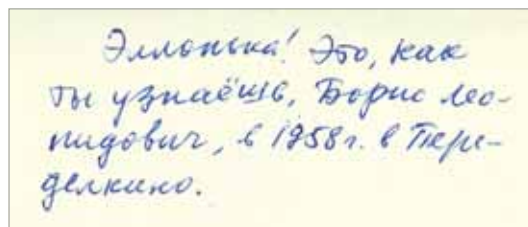 Эллочька! Это, как
ты узнаёшь, Борис Лео-
нидович, в 1958 г. в Пере-
делкино.